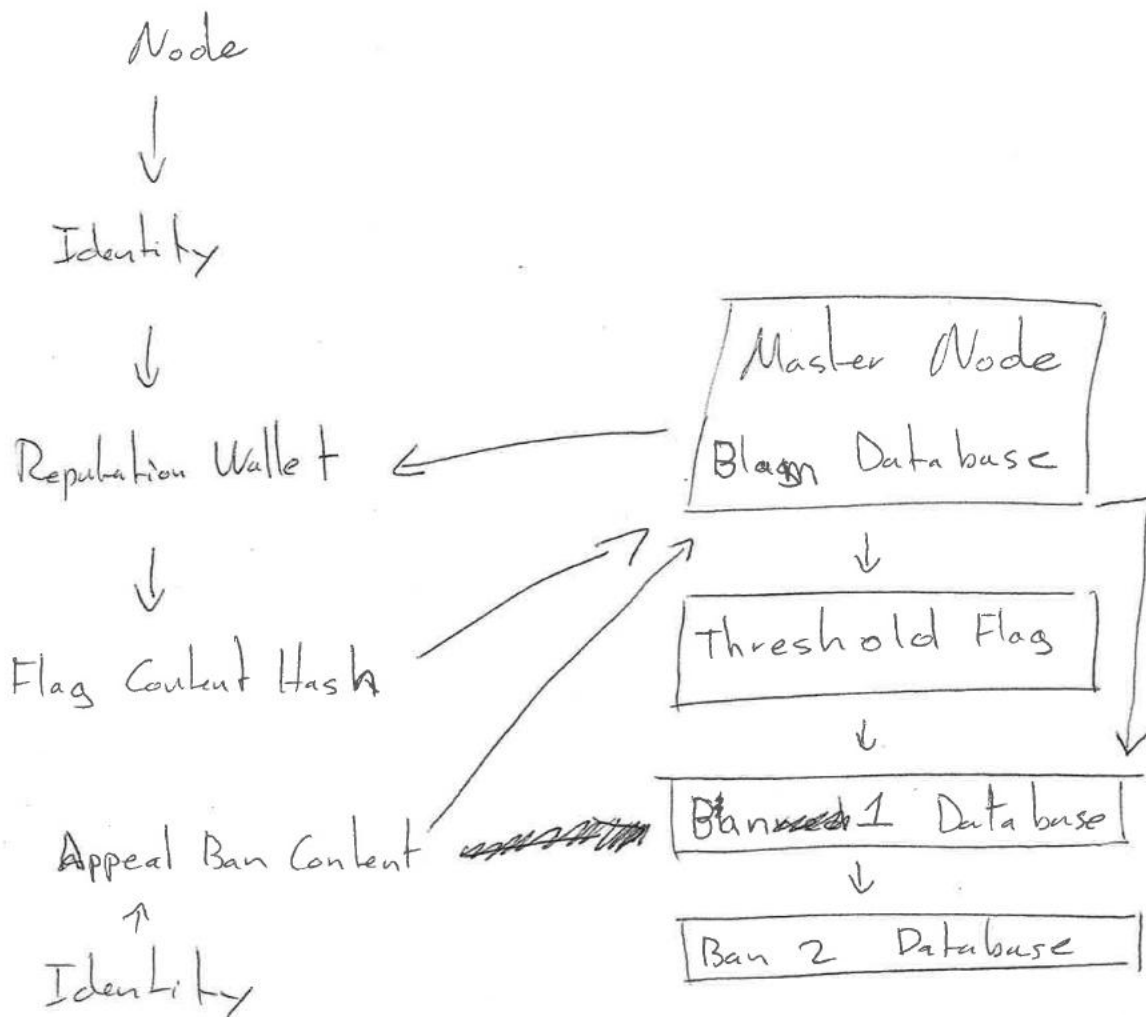 Node
Identity
Reputation Wallet
Flag Content Hash
Appeal Ban Content
Identity
Master Node
Database
Threshold Flag
Ban 1 Database
Ban 2 Database